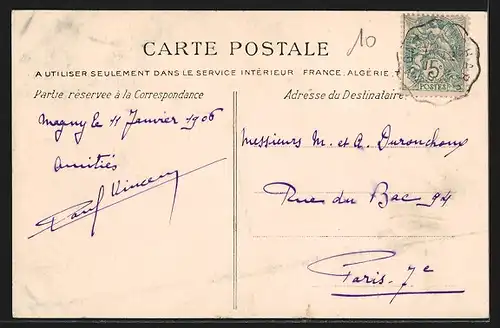 10
CARTE POSTALE
A UTILISER SEULEMENT DANS LE SERVICE INTÉRIEUR FRANCE, ALGÉRIE,
Partie réservée à la Correspondance
Adresse du Destinataire
5
POSTES
Magny le 11 Janvier 1906
Amitiés
Paul Vincent
Messieurs M. et A. Duronchoux
Rue du Bac 94
Paris-7e